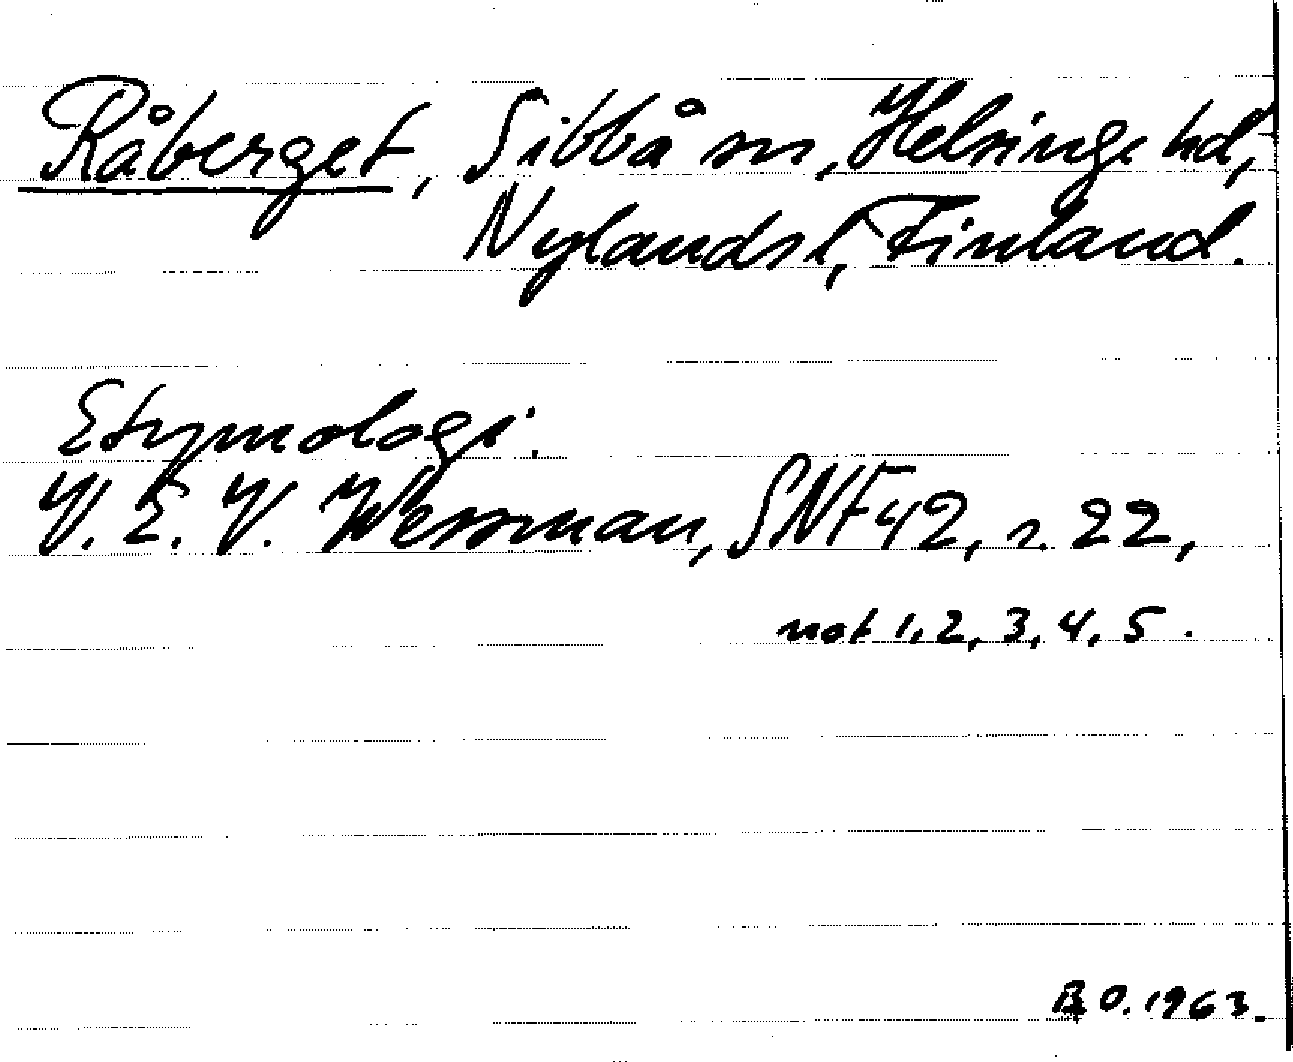 Råberget, Sibbå sn, Helsinge hd,
Nylands l, Finland.
Etymologi.
V. E. V. Wessman, SNF 42, s. 22,
not 1, 2, 3, 4, 5.
B O. 1963.